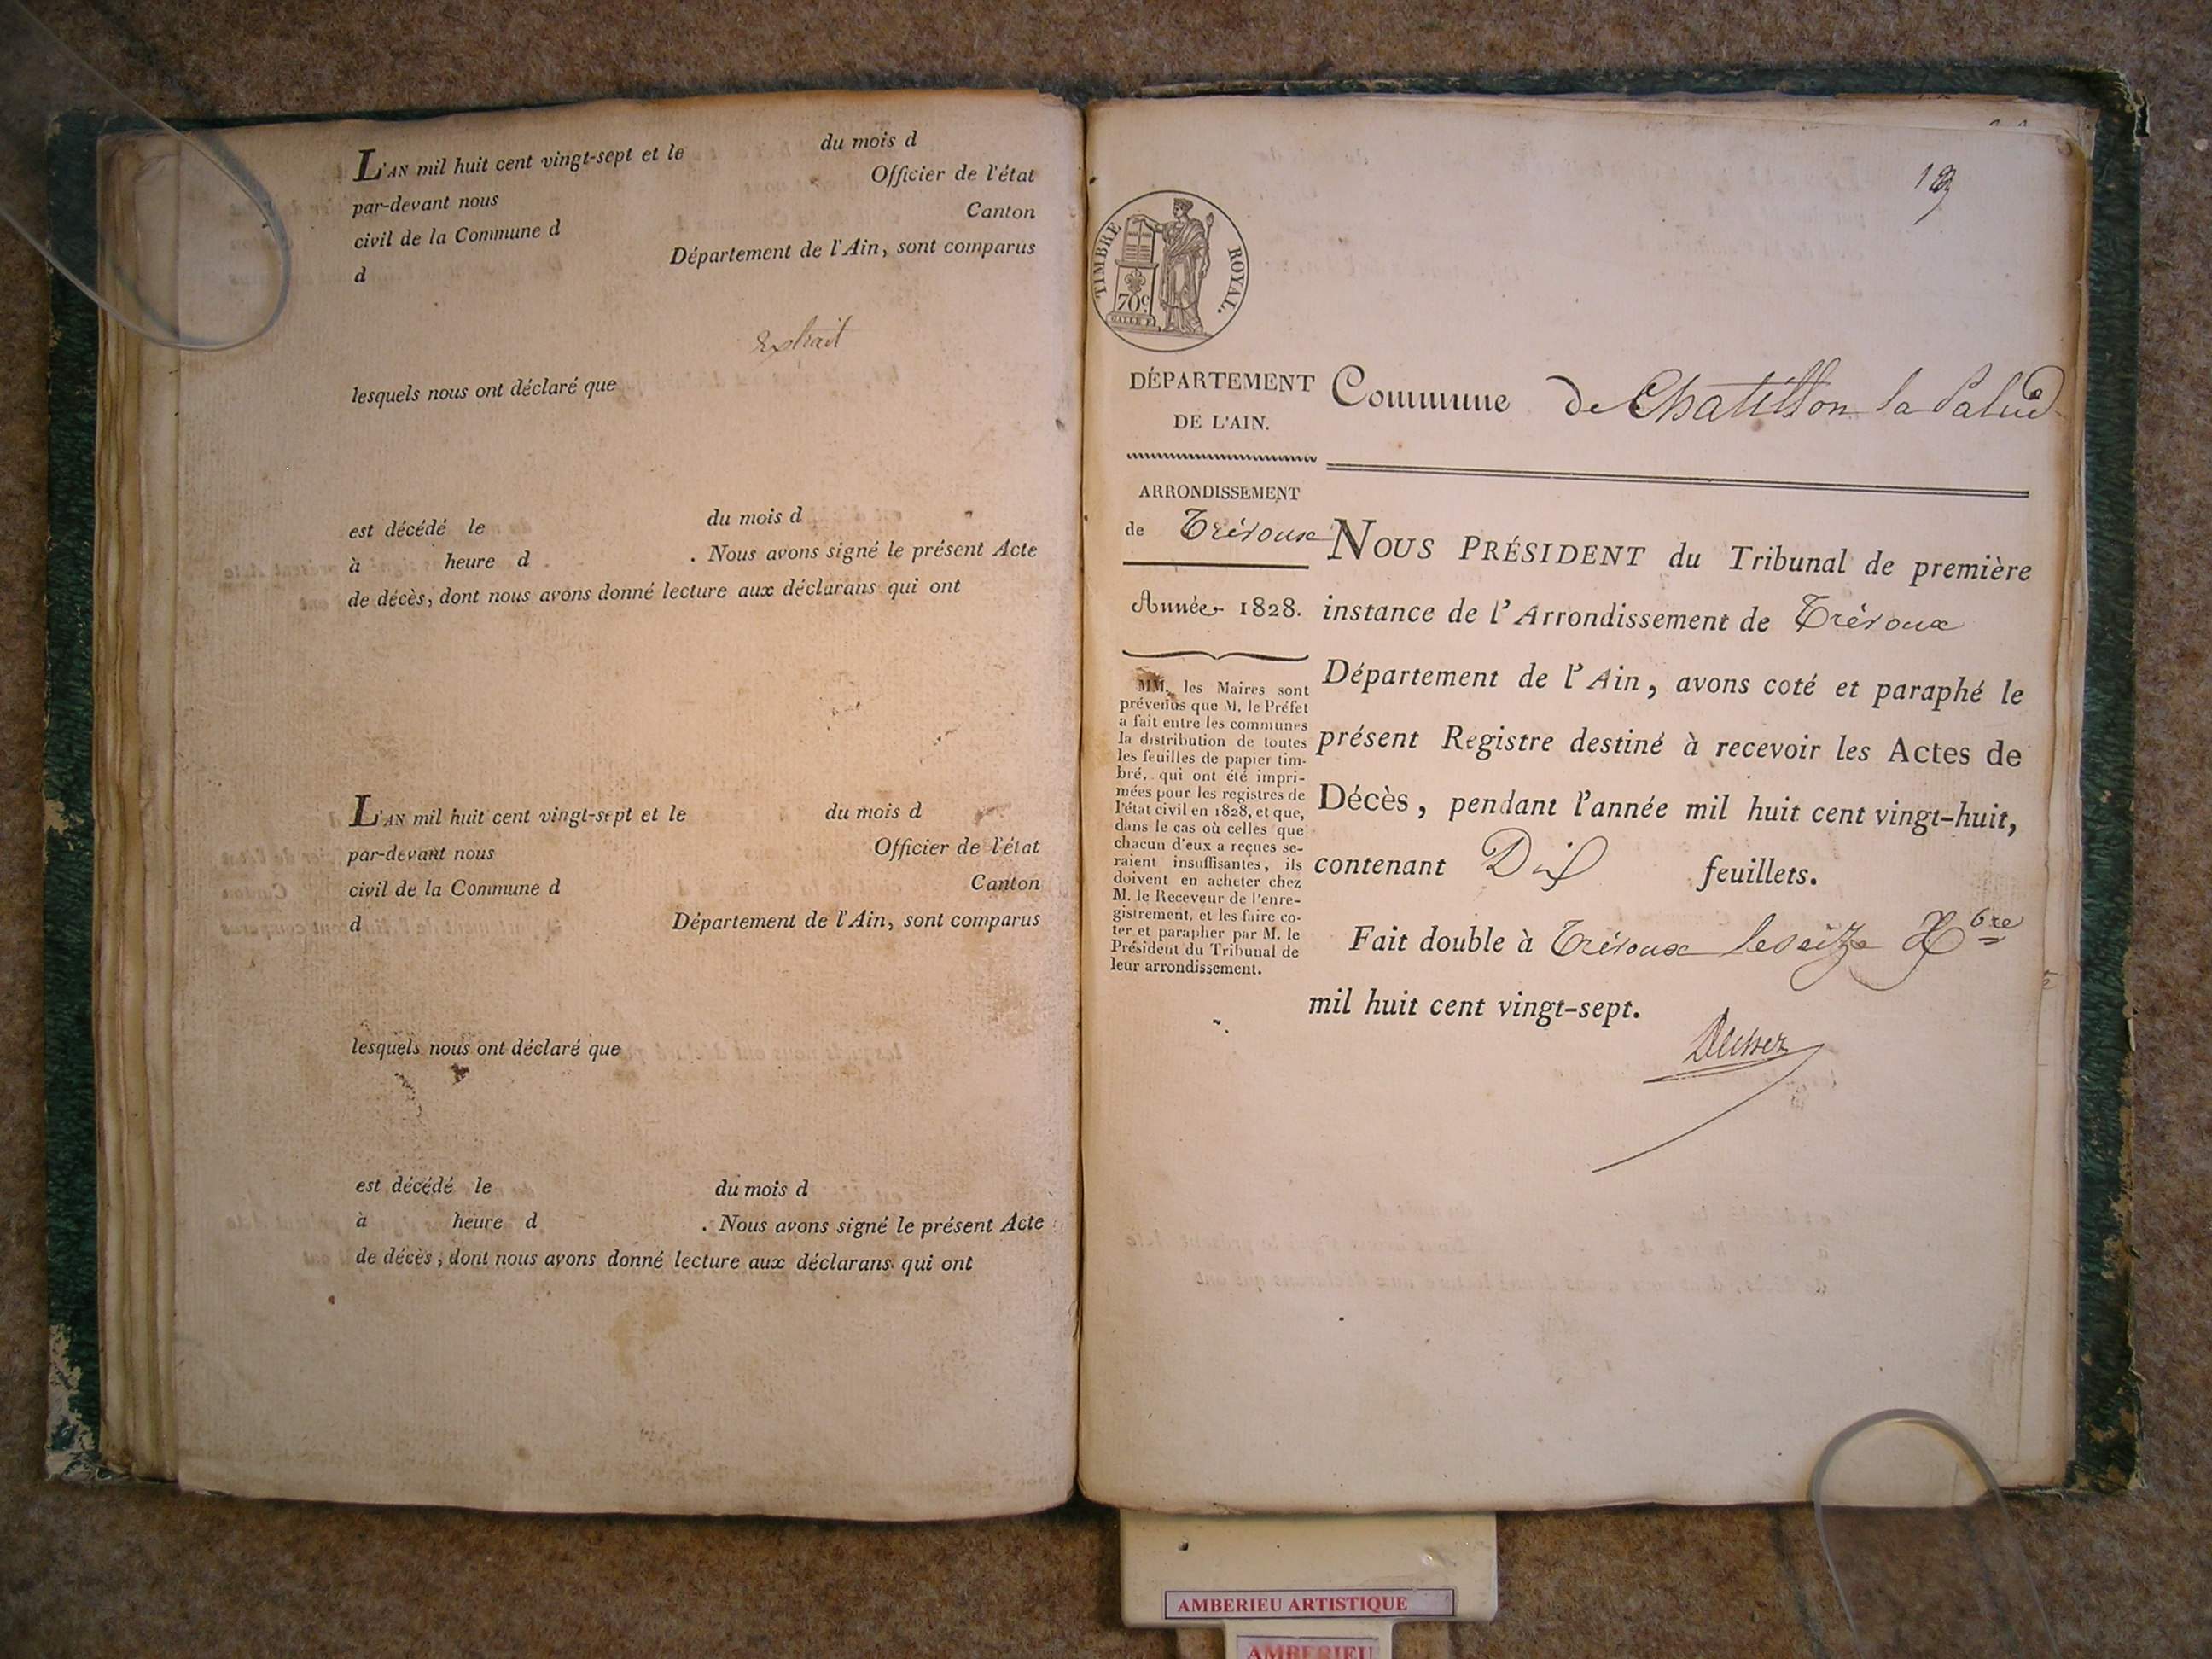 L'AN mil huit cent vingt-sept et le du mois d
par-devant nous Officier de l'état
civil de la Commune d Canton
d Département de l'Ain, sont comparus
Extrait
lesquels nous ont déclaré que
est décédé le du mois d
à heure d . Nous avons signé le présent Acte
de décès, dont nous avons donné lecture aux déclarans qui ont
L'AN mil huit cent vingt-sept et le du mois d
par-devant nous Officier de l'état
civil de la Commune d Canton
d Département de l'Ain, sont comparus
lesquels nous ont déclaré que
est décédé le du mois d
à heure d . Nous avons signé le présent Acte
de décès, dont nous avons donné lecture aux déclarans qui ont
TIMBRE ROYAL.
70c
DÉPARTEMENT
DE L'AIN.
Commune de Chatillon la Palud
ARRONDISSEMENT
de Trévoux
Année 1828.
MM. les Maires sont
prévenus que M. le Préfet
a fait entre les communes
la distribution de toutes
les feuilles de papier tim-
bré, qui ont été impri-
mées pour les registres de
l'état civil en 1828, et que,
dans le cas où celles que
chacun d'eux a reçues se-
raient insuffisantes, ils
doivent en acheter chez
M. le Receveur de l'enre-
gistrement, et les faire co-
ter et parapher par M. le
Président du Tribunal de
leur arrondissement.
NOUS PRÉSIDENT du Tribunal de première
instance de l'Arrondissement de Trévoux
Département de l'Ain, avons coté et paraphé le
présent Registre destiné à recevoir les Actes de
Décès, pendant l'année mil huit cent vingt-huit,
contenant Dix feuillets.
Fait double à Trévoux le seize Xbre
mil huit cent vingt-sept.
AMBERIEU ARTISTIQUE
AMBERIEU